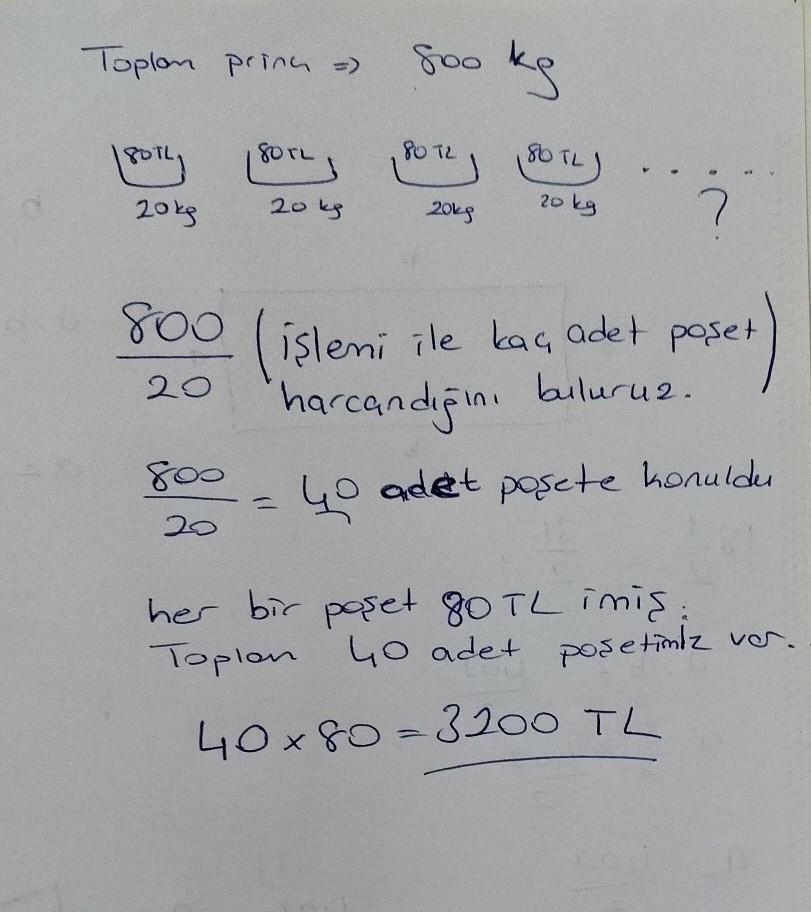 Toplam pirinç => 800 kg
80TL 80TL 80TL 80TL . . . . . .
20kg 20 kg 20kg 20 kg ?
800/20 (işlemi ile kaç adet poşet
harcandığını buluruz.)
800/20 = 40 adet poşete konuldu
her bir poşet 80 TL imiş.
Toplam 40 adet poşetimiz var.
40 x 80 = 3200 TL